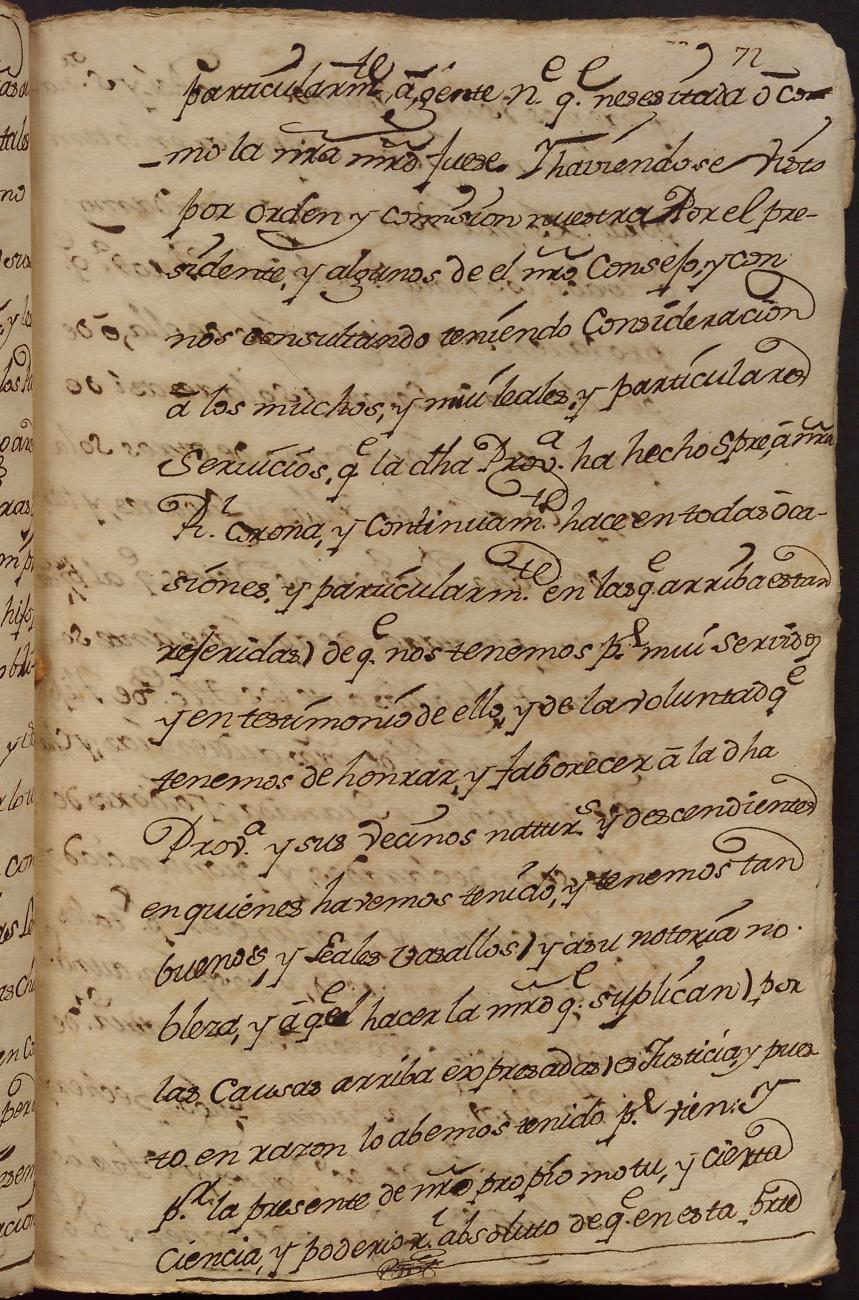 72
particularm.te, â gente n.e q.e nesesitada ô co-
-mo la nr̃a mr̃d fuese. Y haviendose visto
por orden y comision nuestra Por el pre-
sidente, y algunos de el nr̃o Consejo, y con
nos consultando teniendo Consideracion
â los muchos, y muí leales, y particulares
Servicios, q.e la dha Prov.a ha hecho Spre, â nr̃a
R.l corona, y Continuam.te hace en todas ôca-
siones, y particularm.te en las q.e arriba estan
referidas) de q.e nos tenemos p.r muí servidos
y en testimonio de ello, y de la voluntad q.e
tenemos de honrar, y faborecer â la dha
Prov.a y sus Vecinos natur.s y descendientes
en quienes havemos tenido, y tenemos tan
buenos, y Leales vasallos) y a su notoria no-
bleza, y â q.e el hacer la mr̃d q.e suplican) por
las Causas arriba expresadas) es Justicia, y pues-
to en razon lo abemos tenido p.r vien: Y
p.r la presente de nr̃o propio motu, y cierta
Ciencia, y poderio r.l absolutto de q.e en esta prte